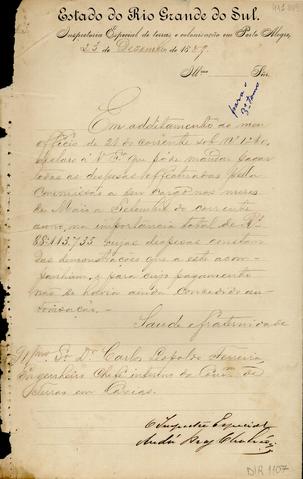 Estado do Rio Grande do Sul.
Inspectoria Especial de terras e colonisação em Porto Alegre,
23 de Dezembro de 1889.
Illmo Snr.
para o
3º tomo
Em additamento ao meu
officio de 21 do corrente sob Nº
declaro a V. Exª que pode mandar pagar
todas as despesas effectuadas pela
Commissão a seu cargo nos meses
de Maio a Setembro do corrente
anno, na importancia total de Rs
88:113,733 cujas despesas constam
das demonstrações que a este acom-
panham, e para cujo pagamento
não se havia ainda concedido au-
torisação.
Saude e fraternidade
Illmo Sr Dr Carlos Leopoldo Ferreira
Engenheiro Chefe interino da Commissão de
terras em
O Inspector Especial
DIR 1107